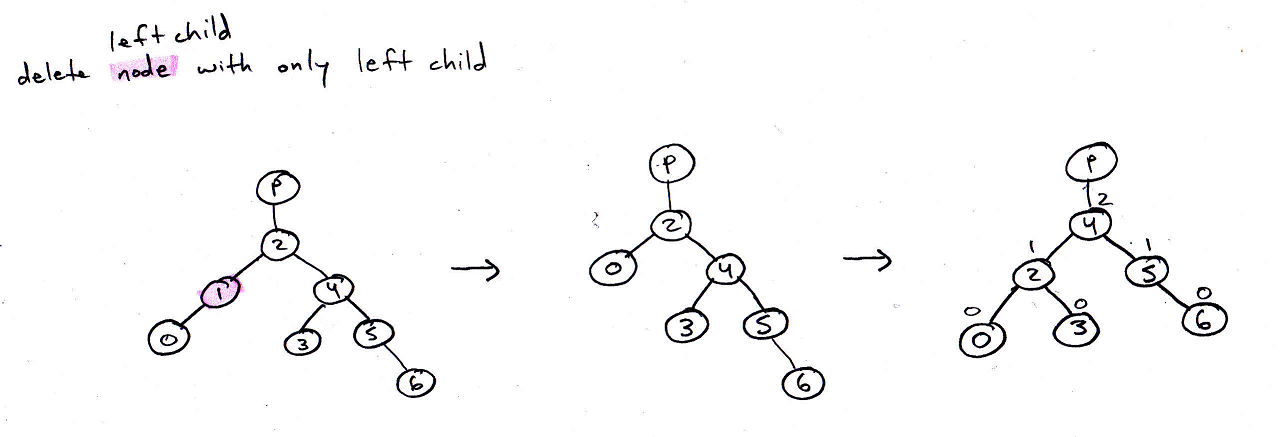 left child
delete node with only left child
P
2
1 4
0 3 5
6
P
2
0 4
3 5
6
P
2
4
1 1
2 5
0 0 0
0 3 6